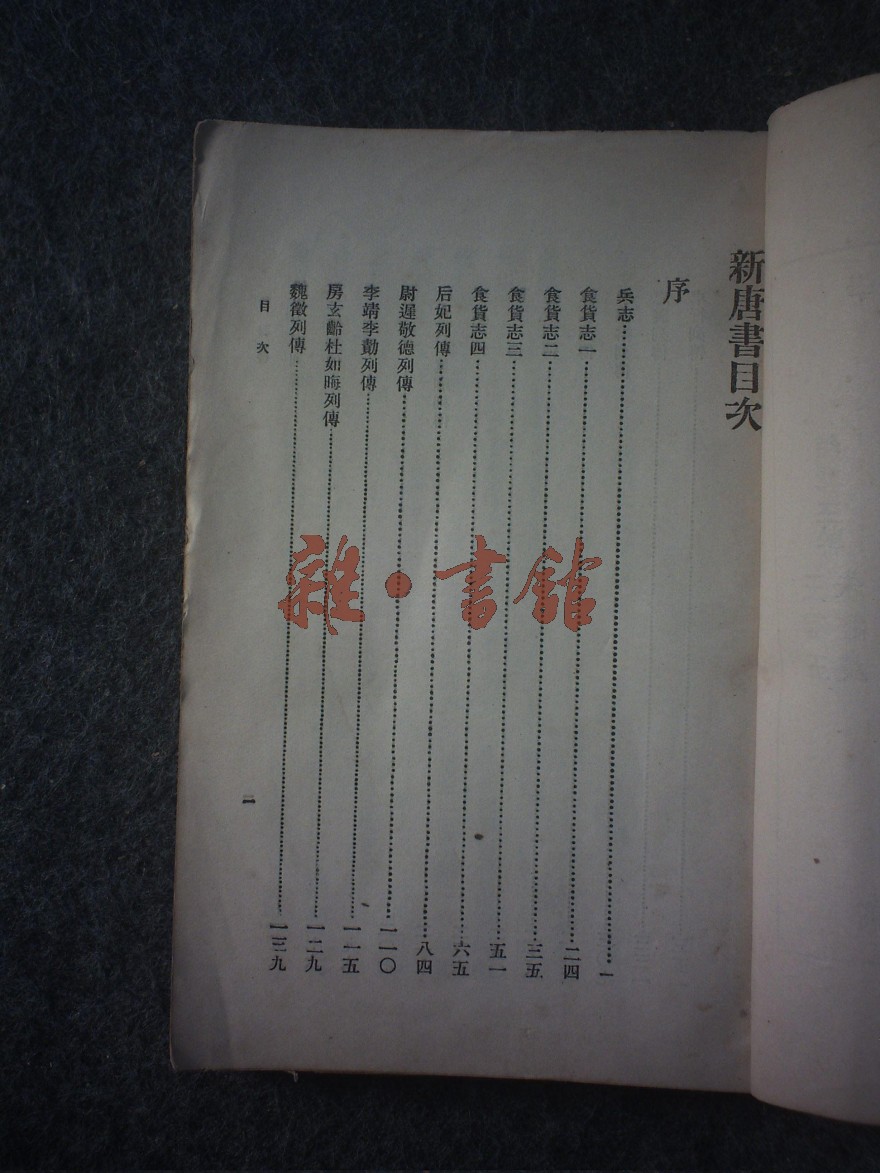 新唐書目次
序
兵志……一
食貨志一……二四
食貨志二……三五
食貨志三……五一
食貨志四……六五
后妃列傳……八四
尉遲敬德列傳……一一〇
李靖李勣列傳……一一五
房玄齡杜如晦列傳……一二九
魏徵列傳……一三九
目次
二
雜·書館